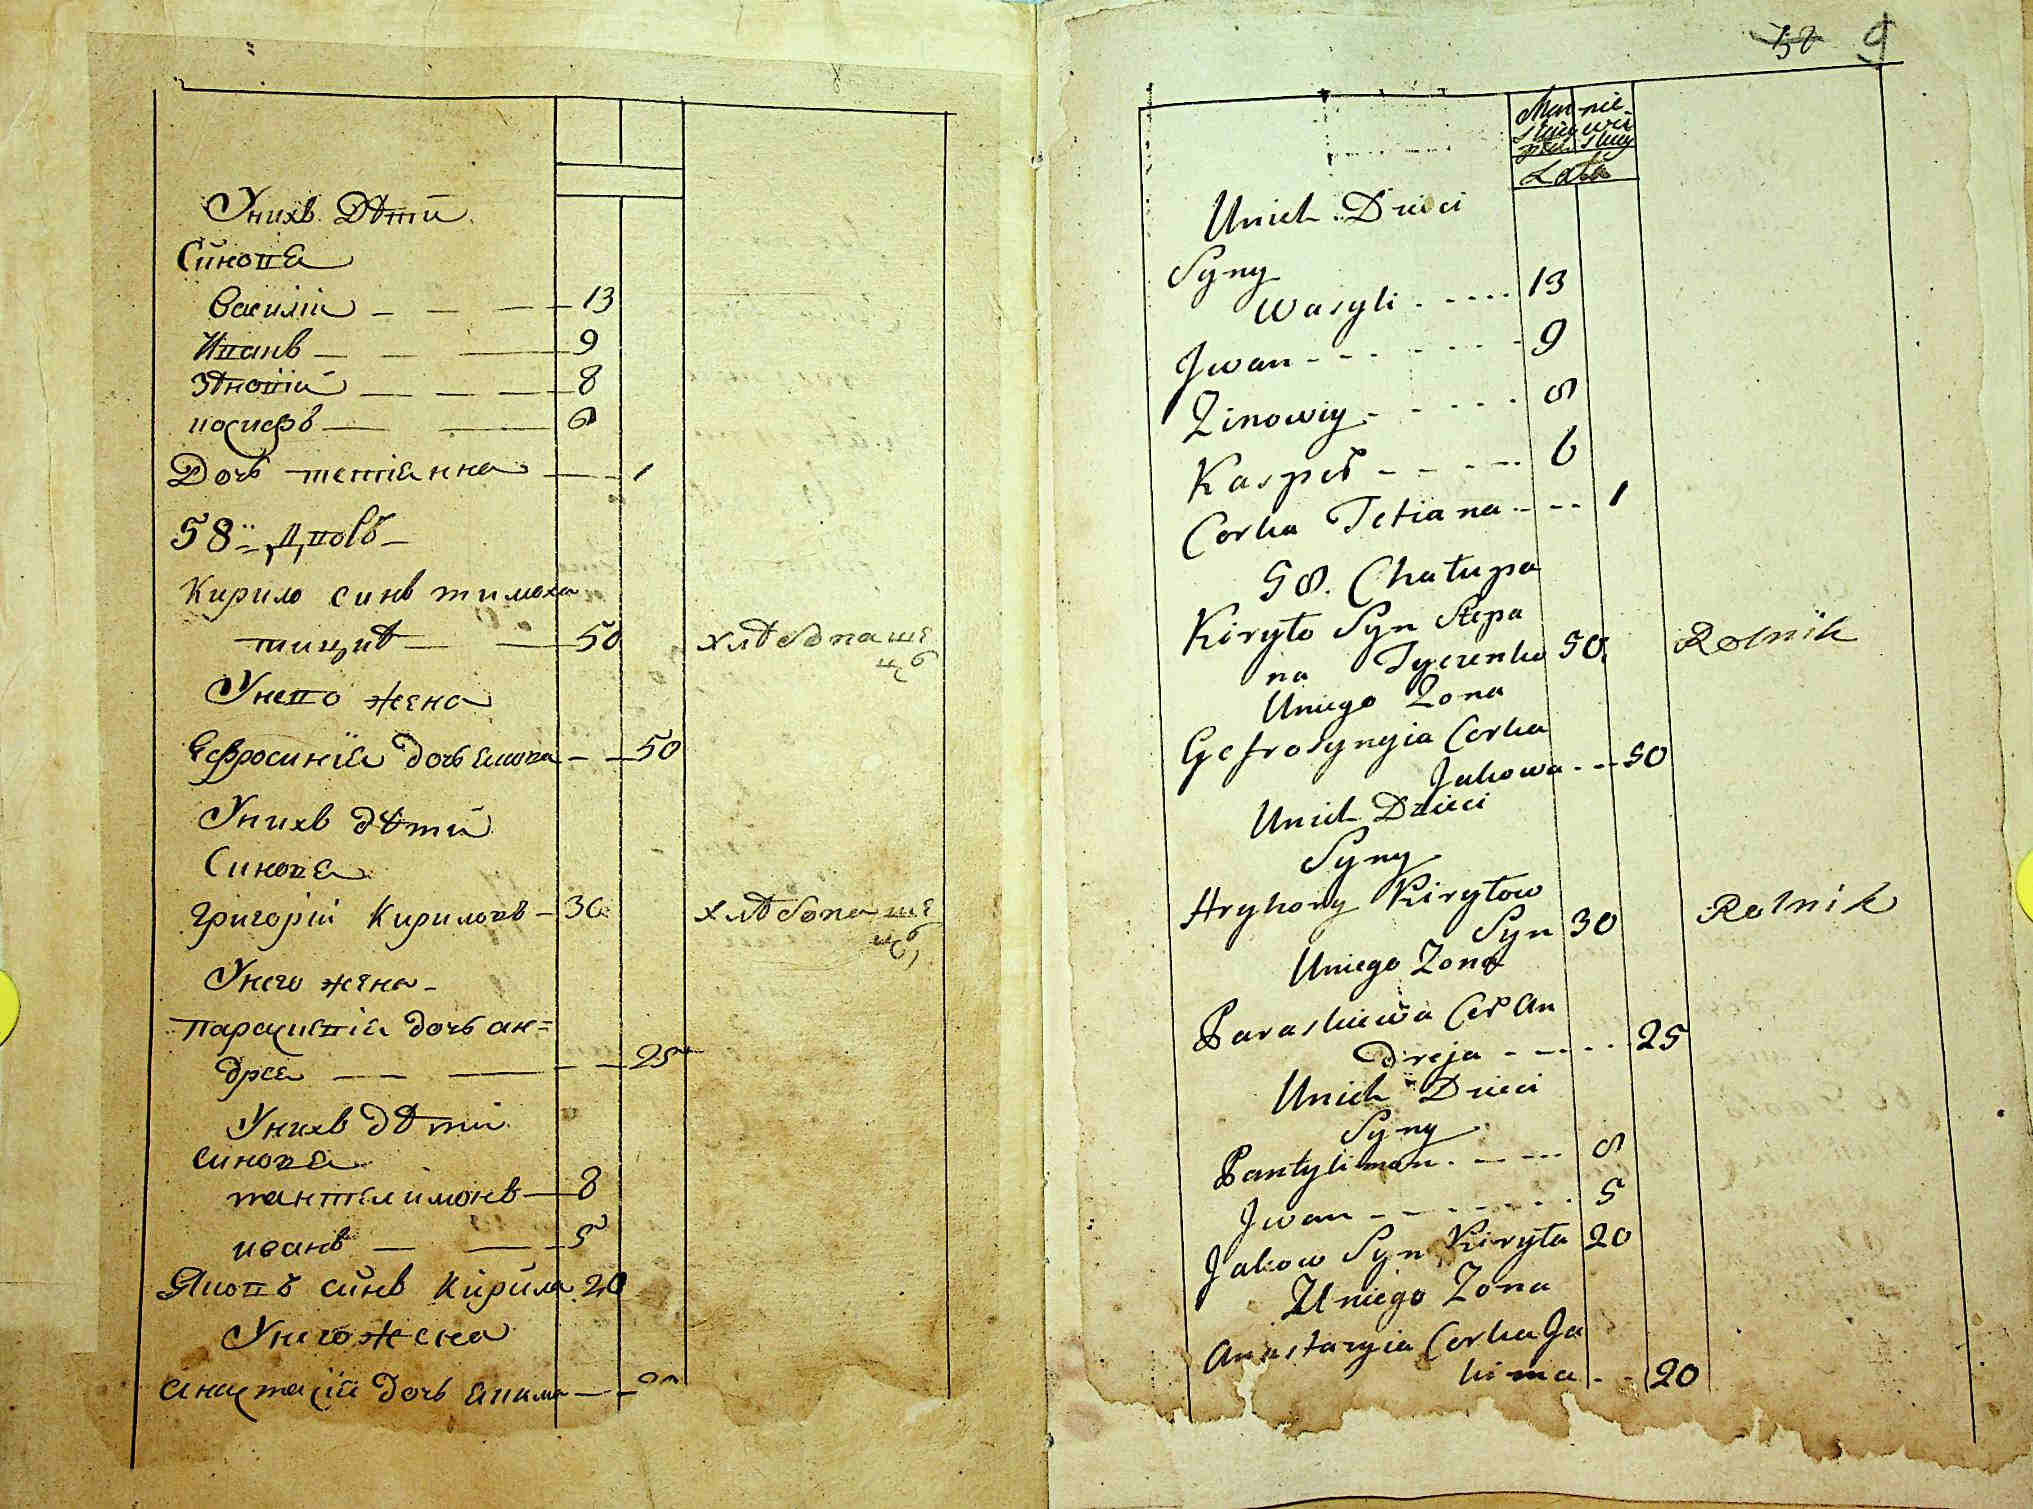 Унихъ Дѣти
Синовя
Василій 13
Иванъ 9
Зѣновій 8
иосифъ 6
Дочь тетіанна 1
58 Двоъ
Кирило синъ тимоха
50 хлѣбопаше
цъ
Унего жена
Ефросинія дочь якова 50
Унихъ дѣти
Синовя
Григорій Кириловъ 30 хлѣбопаше
цъ
Унего жена
параскивія дочь ан=
дрея 25
Унихъ дѣти
синовя
пантелимонъ 8
иванъ 5
Яковъ синъ Кирила 20
Унего жена
анастасія дочь якима
58 9
Lata
Unich Dzieci
Syny
Wasyli 13
Jwan 9
Zinowiy 8
Kasper 6
Corka Tetiana 1
58. Chałupa
Kiryło Syn Stepa
na Tyczenko 50 Rolnik
Uniego Zona
Gefrosynyia Corka
Jakowa 50
Unich Dzieci
Syny
Hryhory Kiryłow
Syn 30 Rolnik
Uniego Zona
Paraskiewia Cor An
dreja 25
Unich Dzieci
Syny
Pantyliman 8
Jwan 5
Jakow Syn Kiryła 20
Uniego Zona
Anastazyia Corka Ja
kima 20